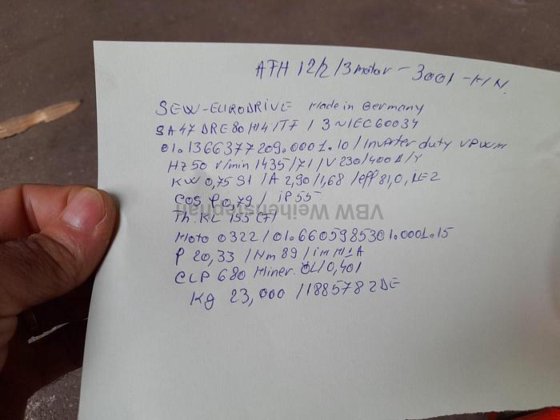 ATH 12/2/3 motor - 3001 - FIN.
SEW-EURODRIVE Made in Germany
SA47 DRE80M4/TF / 3~IEC60034
01.1366377209.0001.10 / Inverter duty VPWM
Hz 50 r/min 1435/71 / V 230/400 Δ/Y
KW 0,75 S1 / A 2,90/1,68 / eff 81,0 / IE2
Cos φ 0,79 / iP 55
VBW Weihenstephan
Th. KL 155 (F)
Moto 0322 / 01.6605985301.0001.15
i 20,33 / Nm 89 / im M1A
CLP 680 Miner. ÖL/0,40l
Kg 23,000 / 1885782DE